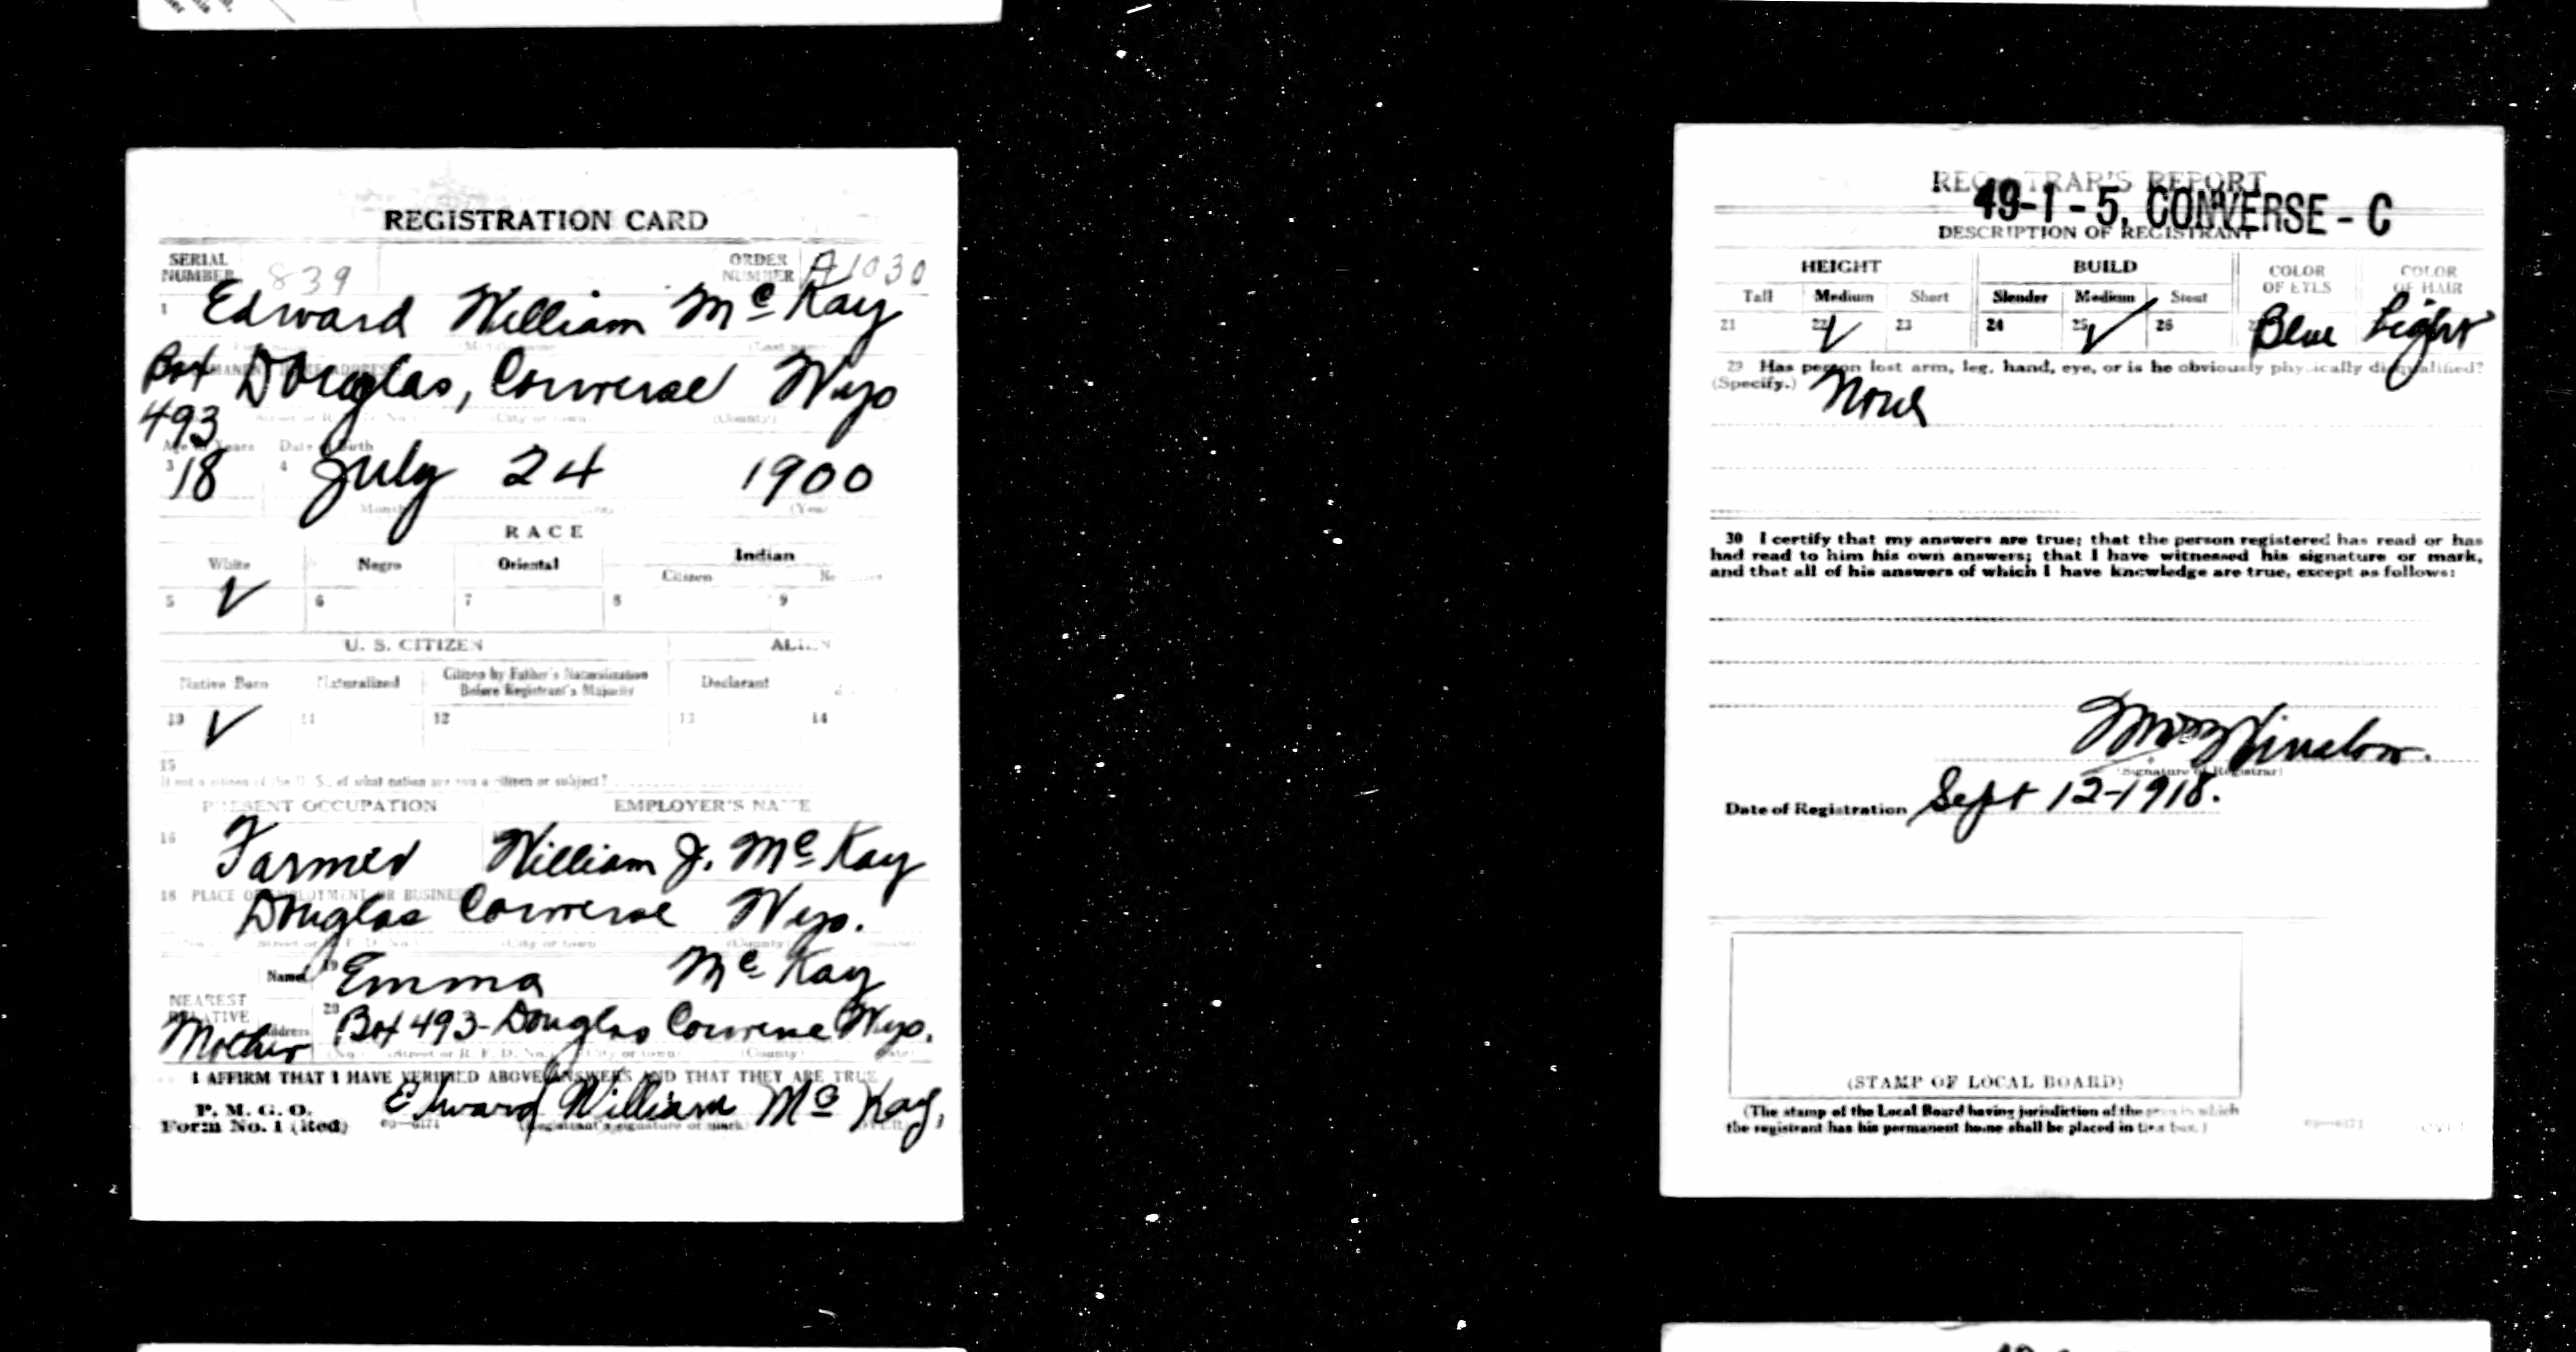 REGISTRATION CARD
SERIAL NUMBER 839 ORDER NUMBER A1030
1 Edward William McKay
Box 493 Douglas, Converse Wyo
(City or town) (County)
Age in Years Date of Birth
3 18 4 July 24 1900
(Year)
RACE
White Negro Oriental Indian
Citizen
5 ✓ 6 7 8 9
U. S. CITIZEN ALIEN
Native Born Naturalized Citizen by Father's Naturalization Before Registrant's Majority Declarant
10 ✓ 11 12 13 14
15
If not a citizen of the U. S., of what nation are you a citizen or subject?
PRESENT OCCUPATION EMPLOYER'S NAME
16 Farmer William J. McKay
18 PLACE OF EMPLOYMENT OR BUSINESS
Douglas Converse Wyo.
(City or town) (County)
Name 19 Emma McKay
NEAREST RELATIVE
Mother Address 20 Box 493-Douglas Converse Wyo.
(No.) (Street or R. F. D. No.) (City or town) (County) (State)
I AFFIRM THAT I HAVE VERIFIED ABOVE ANSWERS AND THAT THEY ARE TRUE
P. M. G. O.
Form No. 1 (Red) Edward William McKay,
(Registrant's signature or mark)
REGISTRAR'S REPORT
49-1-5, CONVERSE - C
DESCRIPTION OF REGISTRANT
HEIGHT BUILD COLOR OF EYES COLOR OF HAIR
Tall Medium Short Slender Medium Stout
21 22 ✓ 23 24 25 ✓ 26 Blue Light
29 Has person lost arm, leg, hand, eye, or is he obviously physically disqualified?
(Specify.) None
30 I certify that my answers are true; that the person registered has read or has
had read to him his own answers; that I have witnessed his signature or mark,
and that all of his answers of which I have knowledge are true, except as follows:
Winslow.
(Signature of Registrar)
Date of Registration Sept 12-1918.
(STAMP OF LOCAL BOARD)
(The stamp of the Local Board having jurisdiction of the area in which
the registrant has his permanent home shall be placed in this box.)